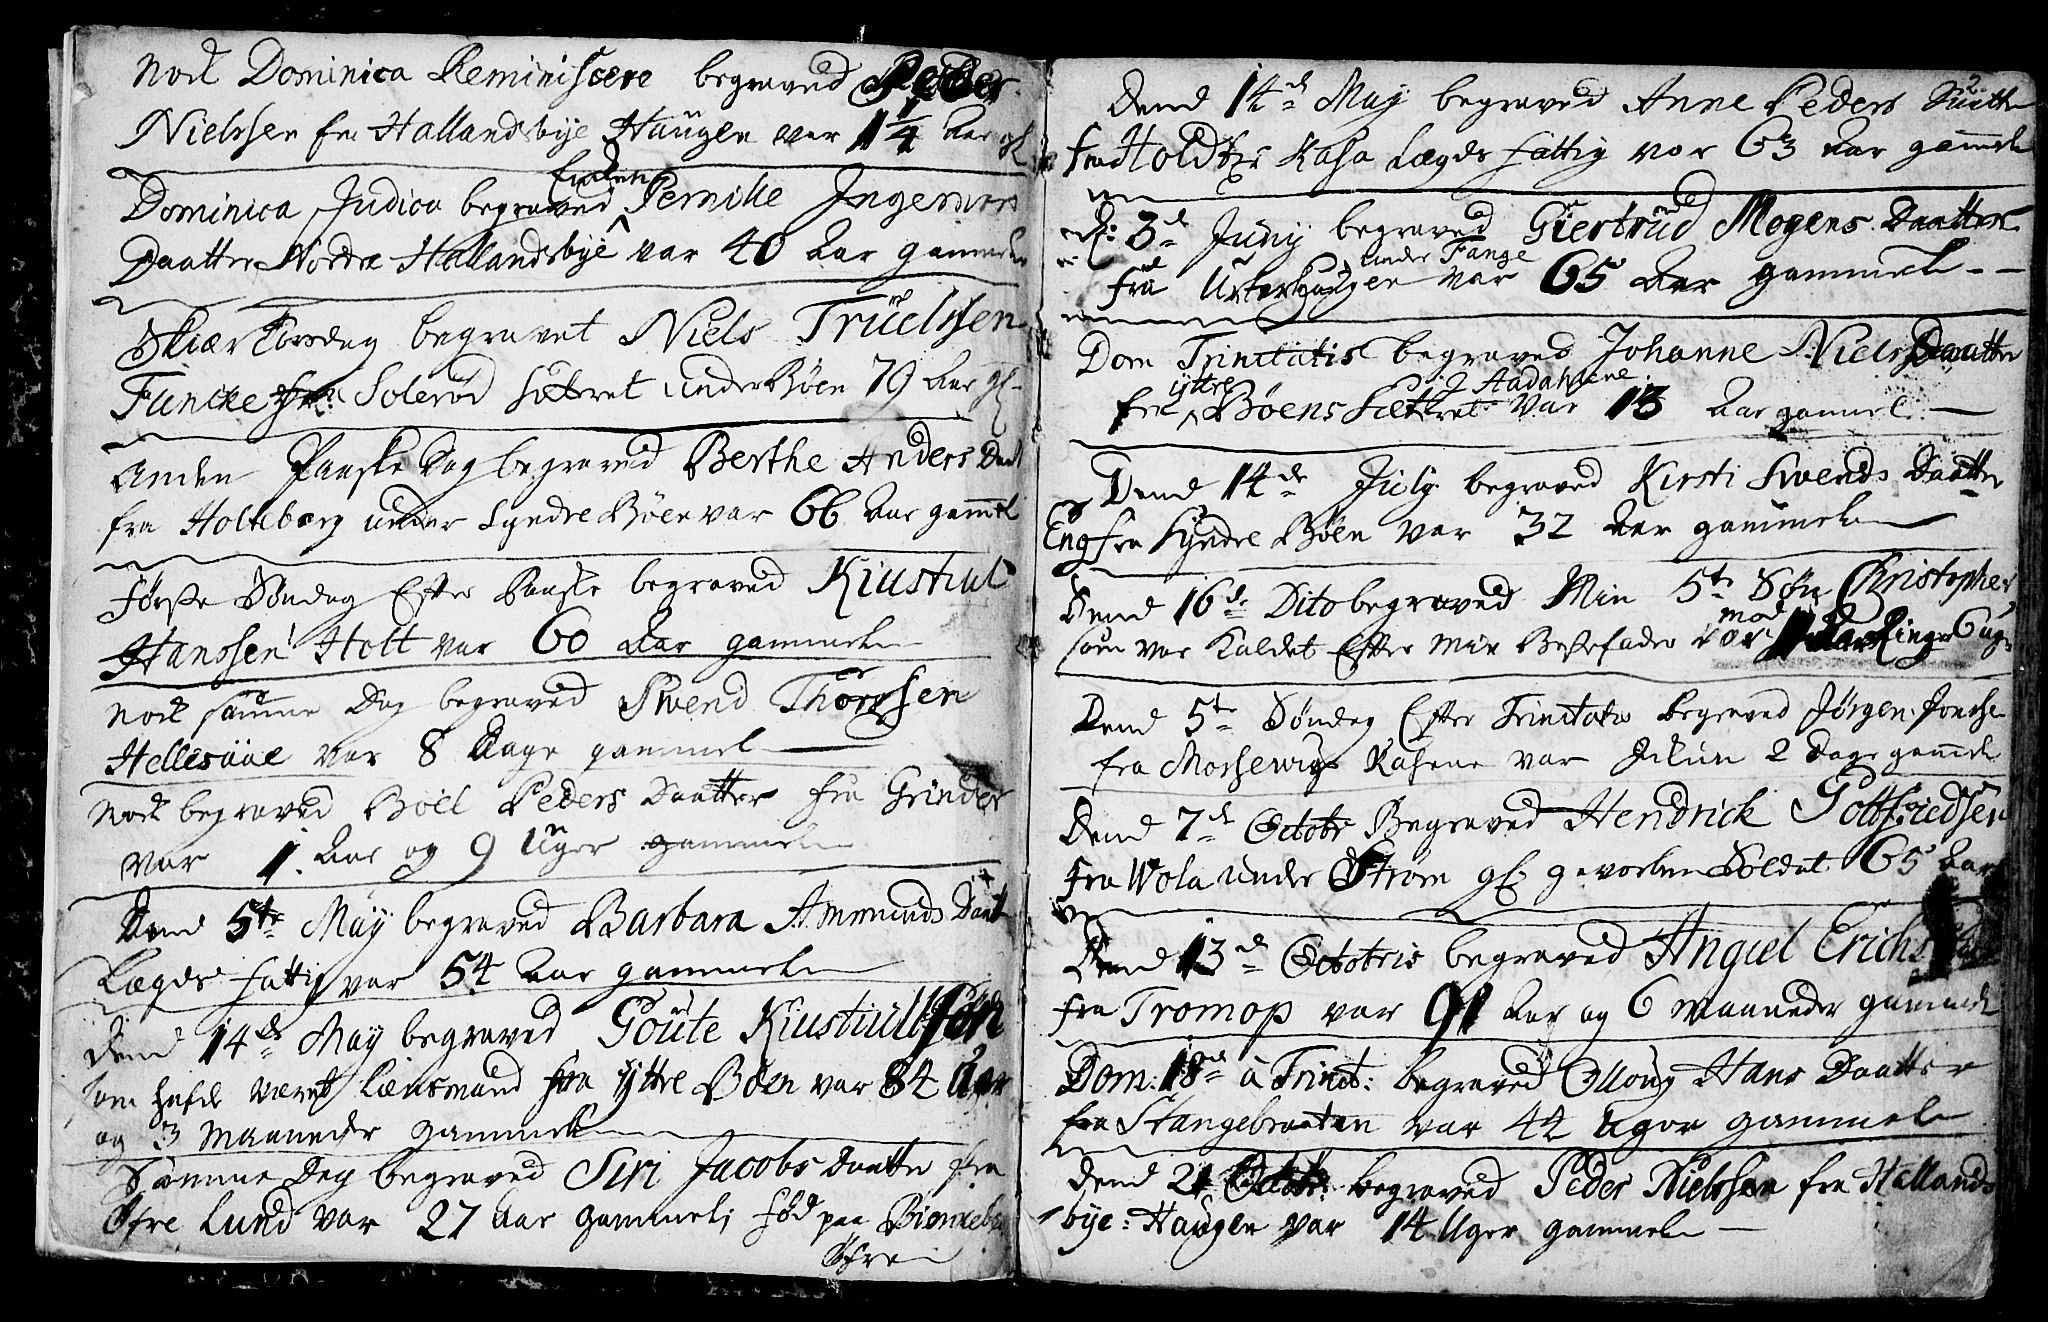 Nock Dominica Reminiscere begraved Peder
Nielssen fra Hallandsbye Haugen var 1 1/4 Aar gl
Dominica Judica begraved Enken Pernille Ingemors
Daatter Nordre Hallandsbye var 40 Aar gammel
Skiærtorsdag begravet Niels Truelssen
Funcke fra Solerød sæteret under Bøen 79 Aar gl
Anden Paaske Dag begraved Berthe Anders Daat
fra Holteberg under Syndre Bøen var 66 Aar gamel
første Søndag Efter Paaske begraved Kiustul
Hanssen Holt var 60 Aar gammel
Nock samme Dag begraved Svend Thorssen
Hellesaae var 8 Dage gammel
Nock begraved Boel Peders Daatter fra Grinder
var 1 Aar og 9 Uger gammel
Dend 5te May begraved Barbara Ammunds Daat
Lægds fattig var 54 Aar gammel
Dend 14de May begraved Goute Kiustulssøn
som hafde været Lænsmand fra Yttre Bøen var 84 Aar
og 3 Maaneder gammel
Samme Dag begraved Siri Jacobs Daatter fra
Øfre Lund var 27 Aar gammel, fød paa
Øfre
2
Dend 14de May begraved Anne Peders Daatter
fra Holdtes Kasa Lægds fattig var 63 Aar gamel
d: 3de Juny begraved Giertrud Mogens Daatter
under Fange
fra Urterhaugen var 65 Aar gammel
Dom Trinitatis begraved Johanne Niels Daatter
yttre i Aadahlene
fra Bøens sæteret var 13 Aar gammel
Dend 14de July begraved Kirsti Svends Daatter
Eng fra Syndre Bøen var 32 Aar gammel
Dend 16de Dito begraved Min 5te Søn Christopher
som var Kaldet Efter Min Bestefader var mod
Dend 5te Søndag Efter Trinitatis begraved Jørgen Jonsse
fra Mossevigs Kasene var Ickun 2 Dage gammel
Dend 7de Octobr Begraved Hendrick Gottfriedsen
fra Wola under Strøm gl gevorben Soldat 65 Aar
Dend 13de Octobris begraved Anguel Erichs
fra Tromop var 91 Aar og 6 Maaneder gammel
Dom: 18de a Trinit: begraved Ollouy Hans Daatter
fra Stangebraaten var 44 Uger gammel
Dend 21 Octobr: begraved Peder Nielssen fra Hallands
bye: Haugen var 14 Uger gammel